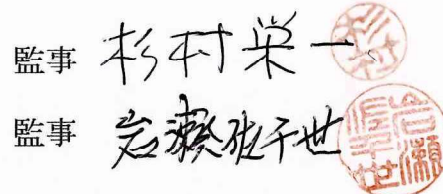 監事 杉村栄一
監事 岩瀬佐千世